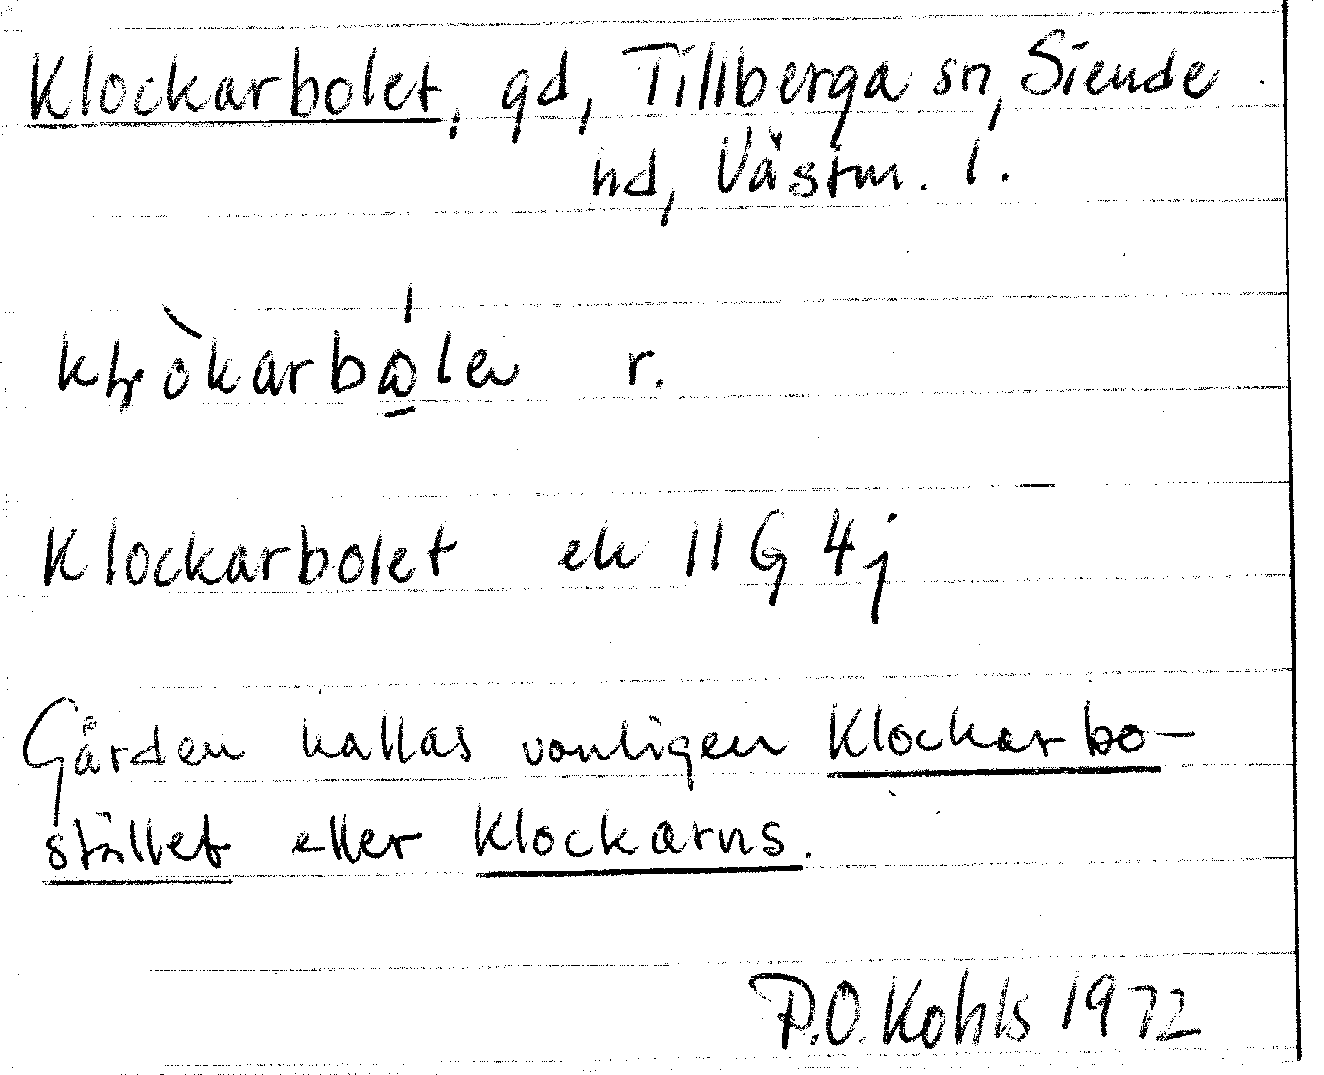 Klockarbolet, gd, Tillberga sn, Siende
hd, Västm. l.
r.
Klockarbolet ek 11 G 4j
Gården kallas vanligen Klockarbo-
stället eller Klockarns.
P.O. Kohls 1972